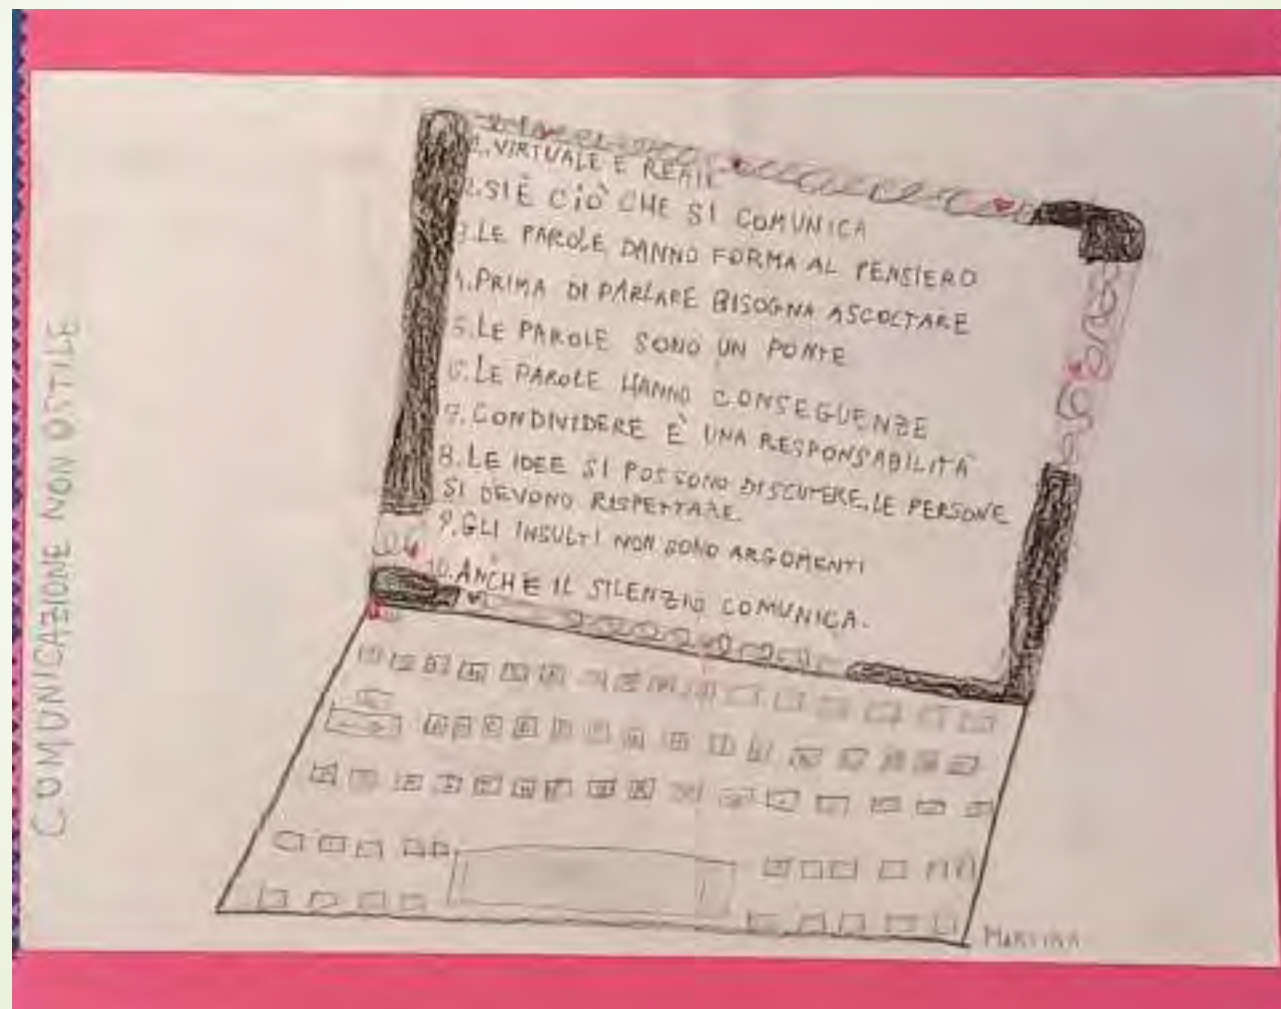 COMUNICAZIONE NON OSTILE
1. VIRTUALE E REALE
2. SI È CIÒ CHE SI COMUNICA
3. LE PAROLE DANNO FORMA AL PENSIERO
4. PRIMA DI PARLARE BISOGNA ASCOLTARE
5. LE PAROLE SONO UN PONTE
6. LE PAROLE HANNO CONSEGUENZE
7. CONDIVIDERE È UNA RESPONSABILITÀ
8. LE IDEE SI POSSONO DISCUTERE, LE PERSONE
SI DEVONO RISPETTARE.
9. GLI INSULTI NON SONO ARGOMENTI
10. ANCHE IL SILENZIO COMUNICA.
MARTINA